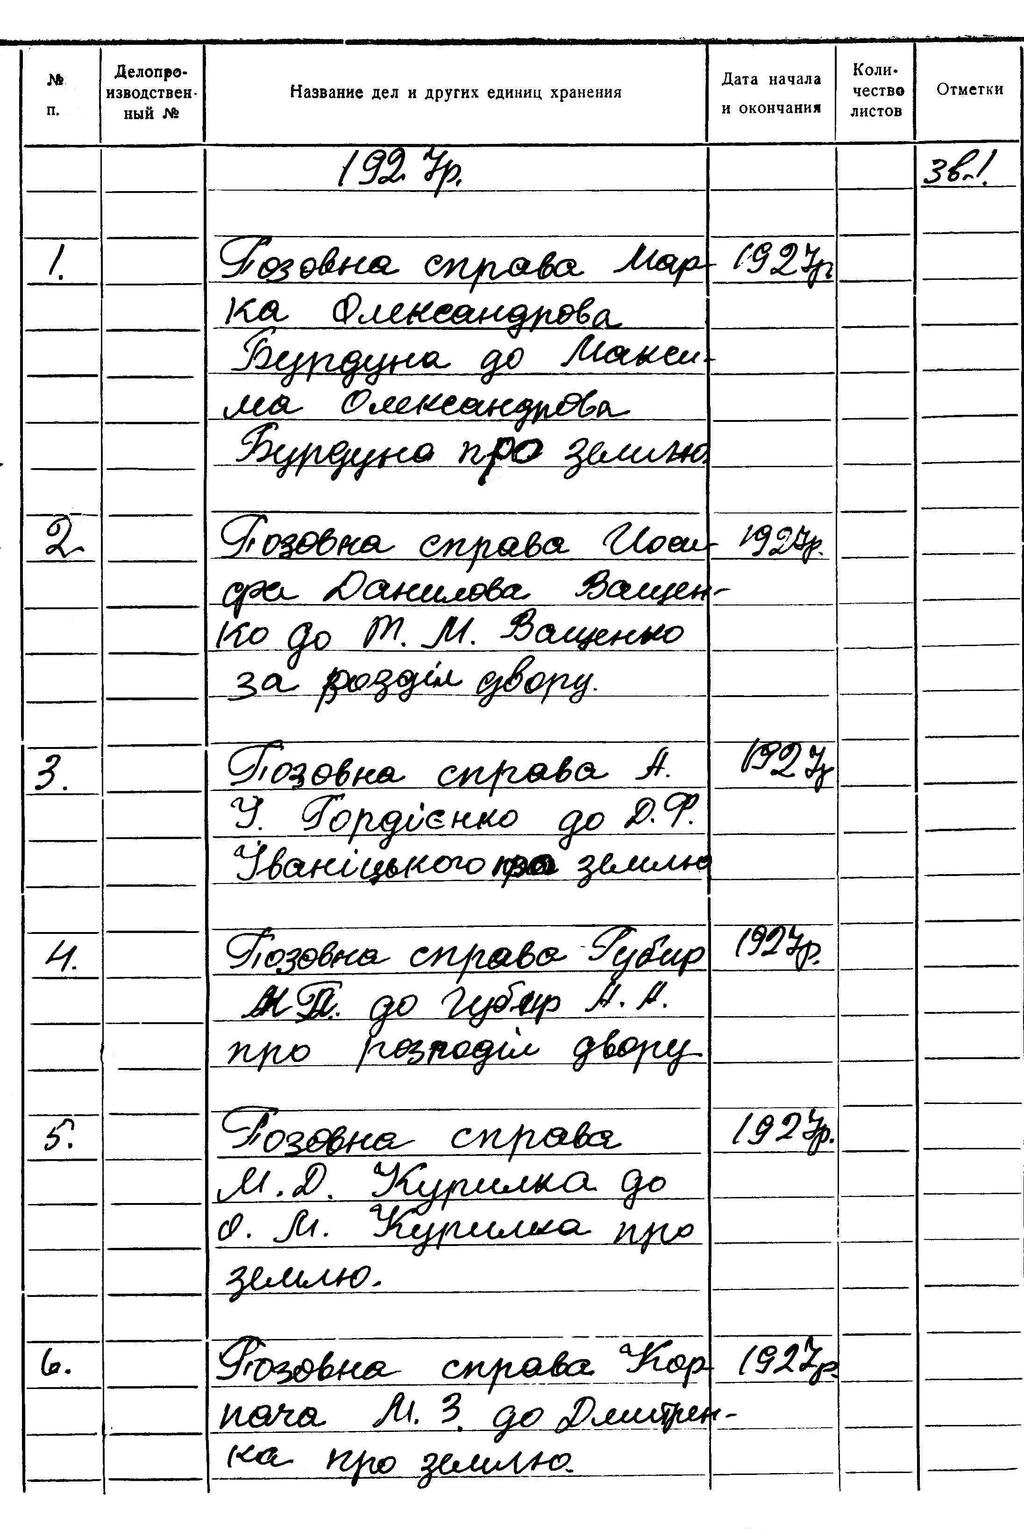 № п.
Делопроизводственный №
Название дел и других единиц хранения
Дата начала и окончания
Количество листов
Отметки
1927р.
Зв.1.
1. Позовна справа Мар- 1927р
ка Олександрова
Бурдуна до Макси-
ма Олександрова
Бурдуна про землю.
2. Позовна справа Йоси- 1927р.
фа Данилова Ващен-
ко до Т. М. Ващенко
за розділ двору.
3. Позовна справа А. 1927р
У. Гордієнко до Д.Ф.
Іваніцького про землю
4. Позовна справа Губир 1927р.
до Губир А. А.
про розподіл двору
5. Позовна справа 1927р.
М.Д. Курилка до
О. М. Курилка про
землю.
6. Позовна справа Кор- 1927р.
пача М. З. до Дмитрен-
ка про землю.